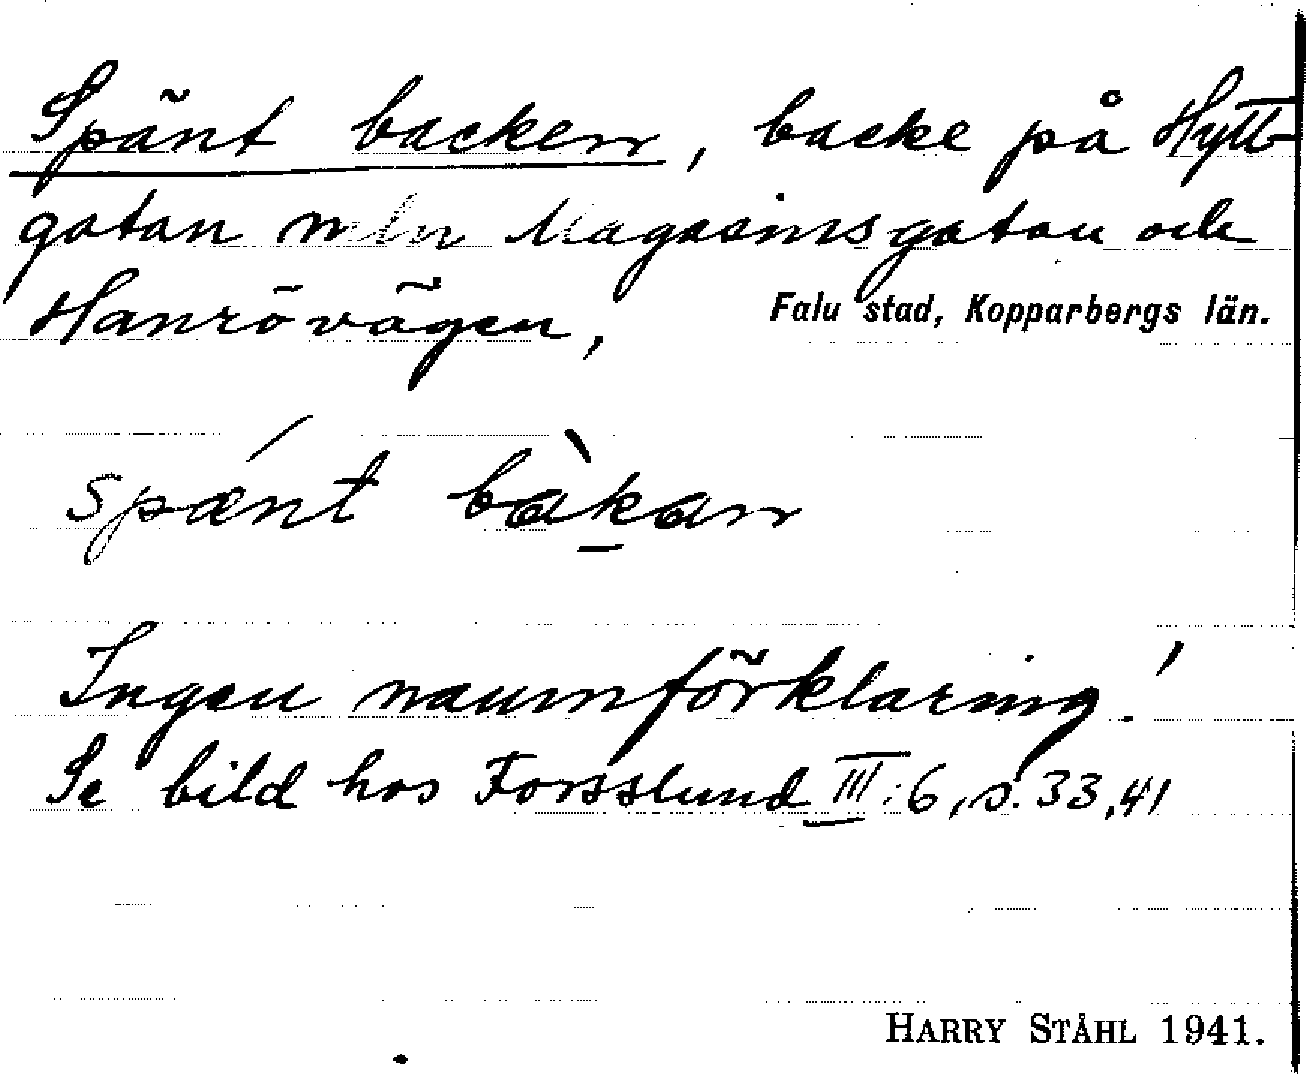 Spänt backen, backe på Hytt-
gatan mln Magasinsgatan och
Hanrövägen,
Falu stad, Kopparbergs län.
spǽnt bàkan
Ingen namnförklaring!
Se bild hos Forsslund III:6, s. 33, 41
HARRY STÅHL 1941.